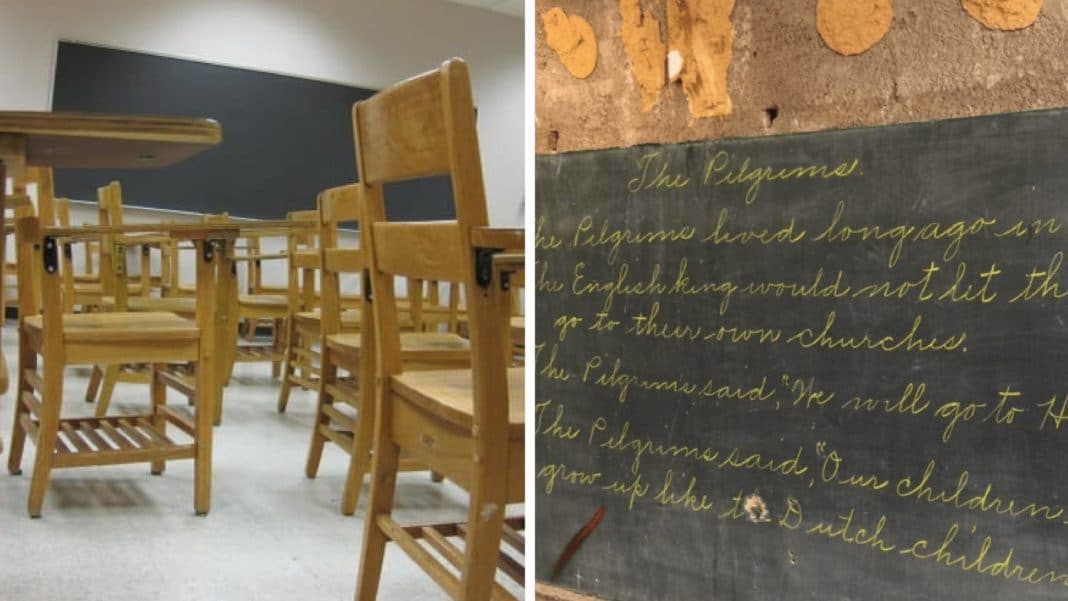 The Pilgrims.
he Pilgrims lived long ago in
he English king would not let th
go to their own churches.
The Pilgrims said, "We will go to H
The Pilgrims said, "Our children
grow up like to Dutch children